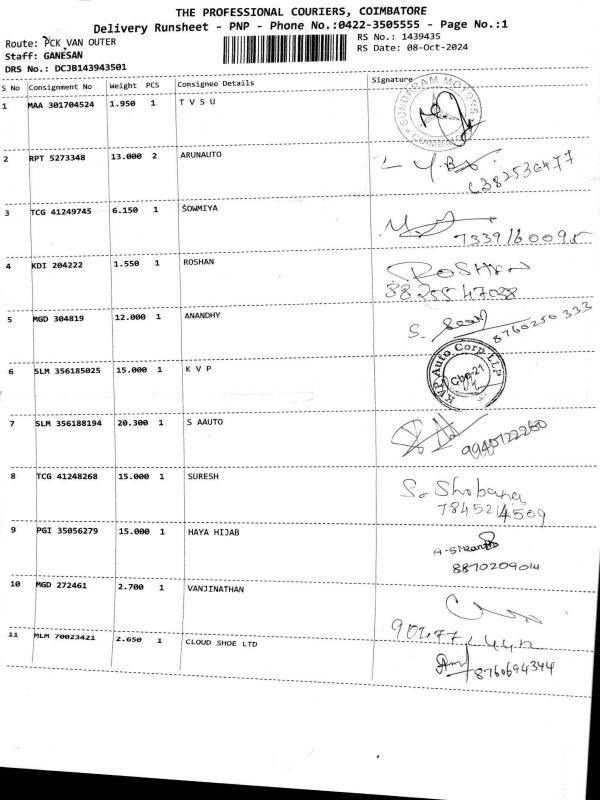 THE PROFESSIONAL COURIERS, COIMBATORE
Delivery Runsheet - PNP - Phone No.:0422-3505555 - Page No.:1
Route: PCK VAN OUTER
RS No.: 1439435
Staff: GANESAN
RS Date: 08-Oct-2024
DRS No.: DCJB143943501
S No Consignment No Weight PCS Consignee Details Signature
1 MAA 301704524 1.950 1 T V S U
2 RPT 5273348 13.000 2 ARUNAUTO
6382536477
3 TCG 41249745 6.150 1 SOWMIYA
4 KDI 204222 1.550 1 ROSHAN ROSHAN
5 MGD 304819 12.000 1 ANANDHY S.
8760250333
6 SLM 356185025 15.000 1 K V P KVP Auto Corp LLP
7 SLM 356188194 20.300 1 S AAUTO
9940122280
8 TCG 41248268 15.000 1 SURESH S. Shobana
7845214509
9 PGI 35056279 15.000 1 HAYA HIJAB
8870209014
10 MGD 272461 2.700 1 VANJINATHAN
11 MLM 70023421 2.650 1 CLOUD SHOE LTD
8760694344